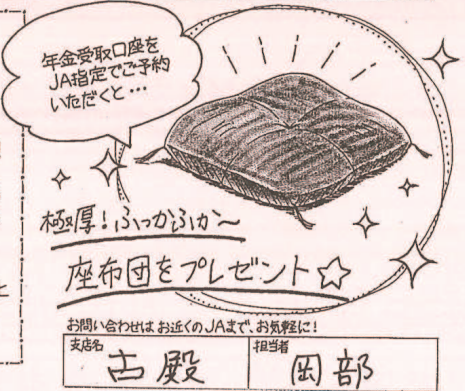 年金受取口座を
JA指定でご予約
いただくと…
極厚！ふっかふか〜
座布団をプレゼント☆
お問い合わせはお近くのJAまで、お気軽に！
支店名 古殿 担当者 岡部